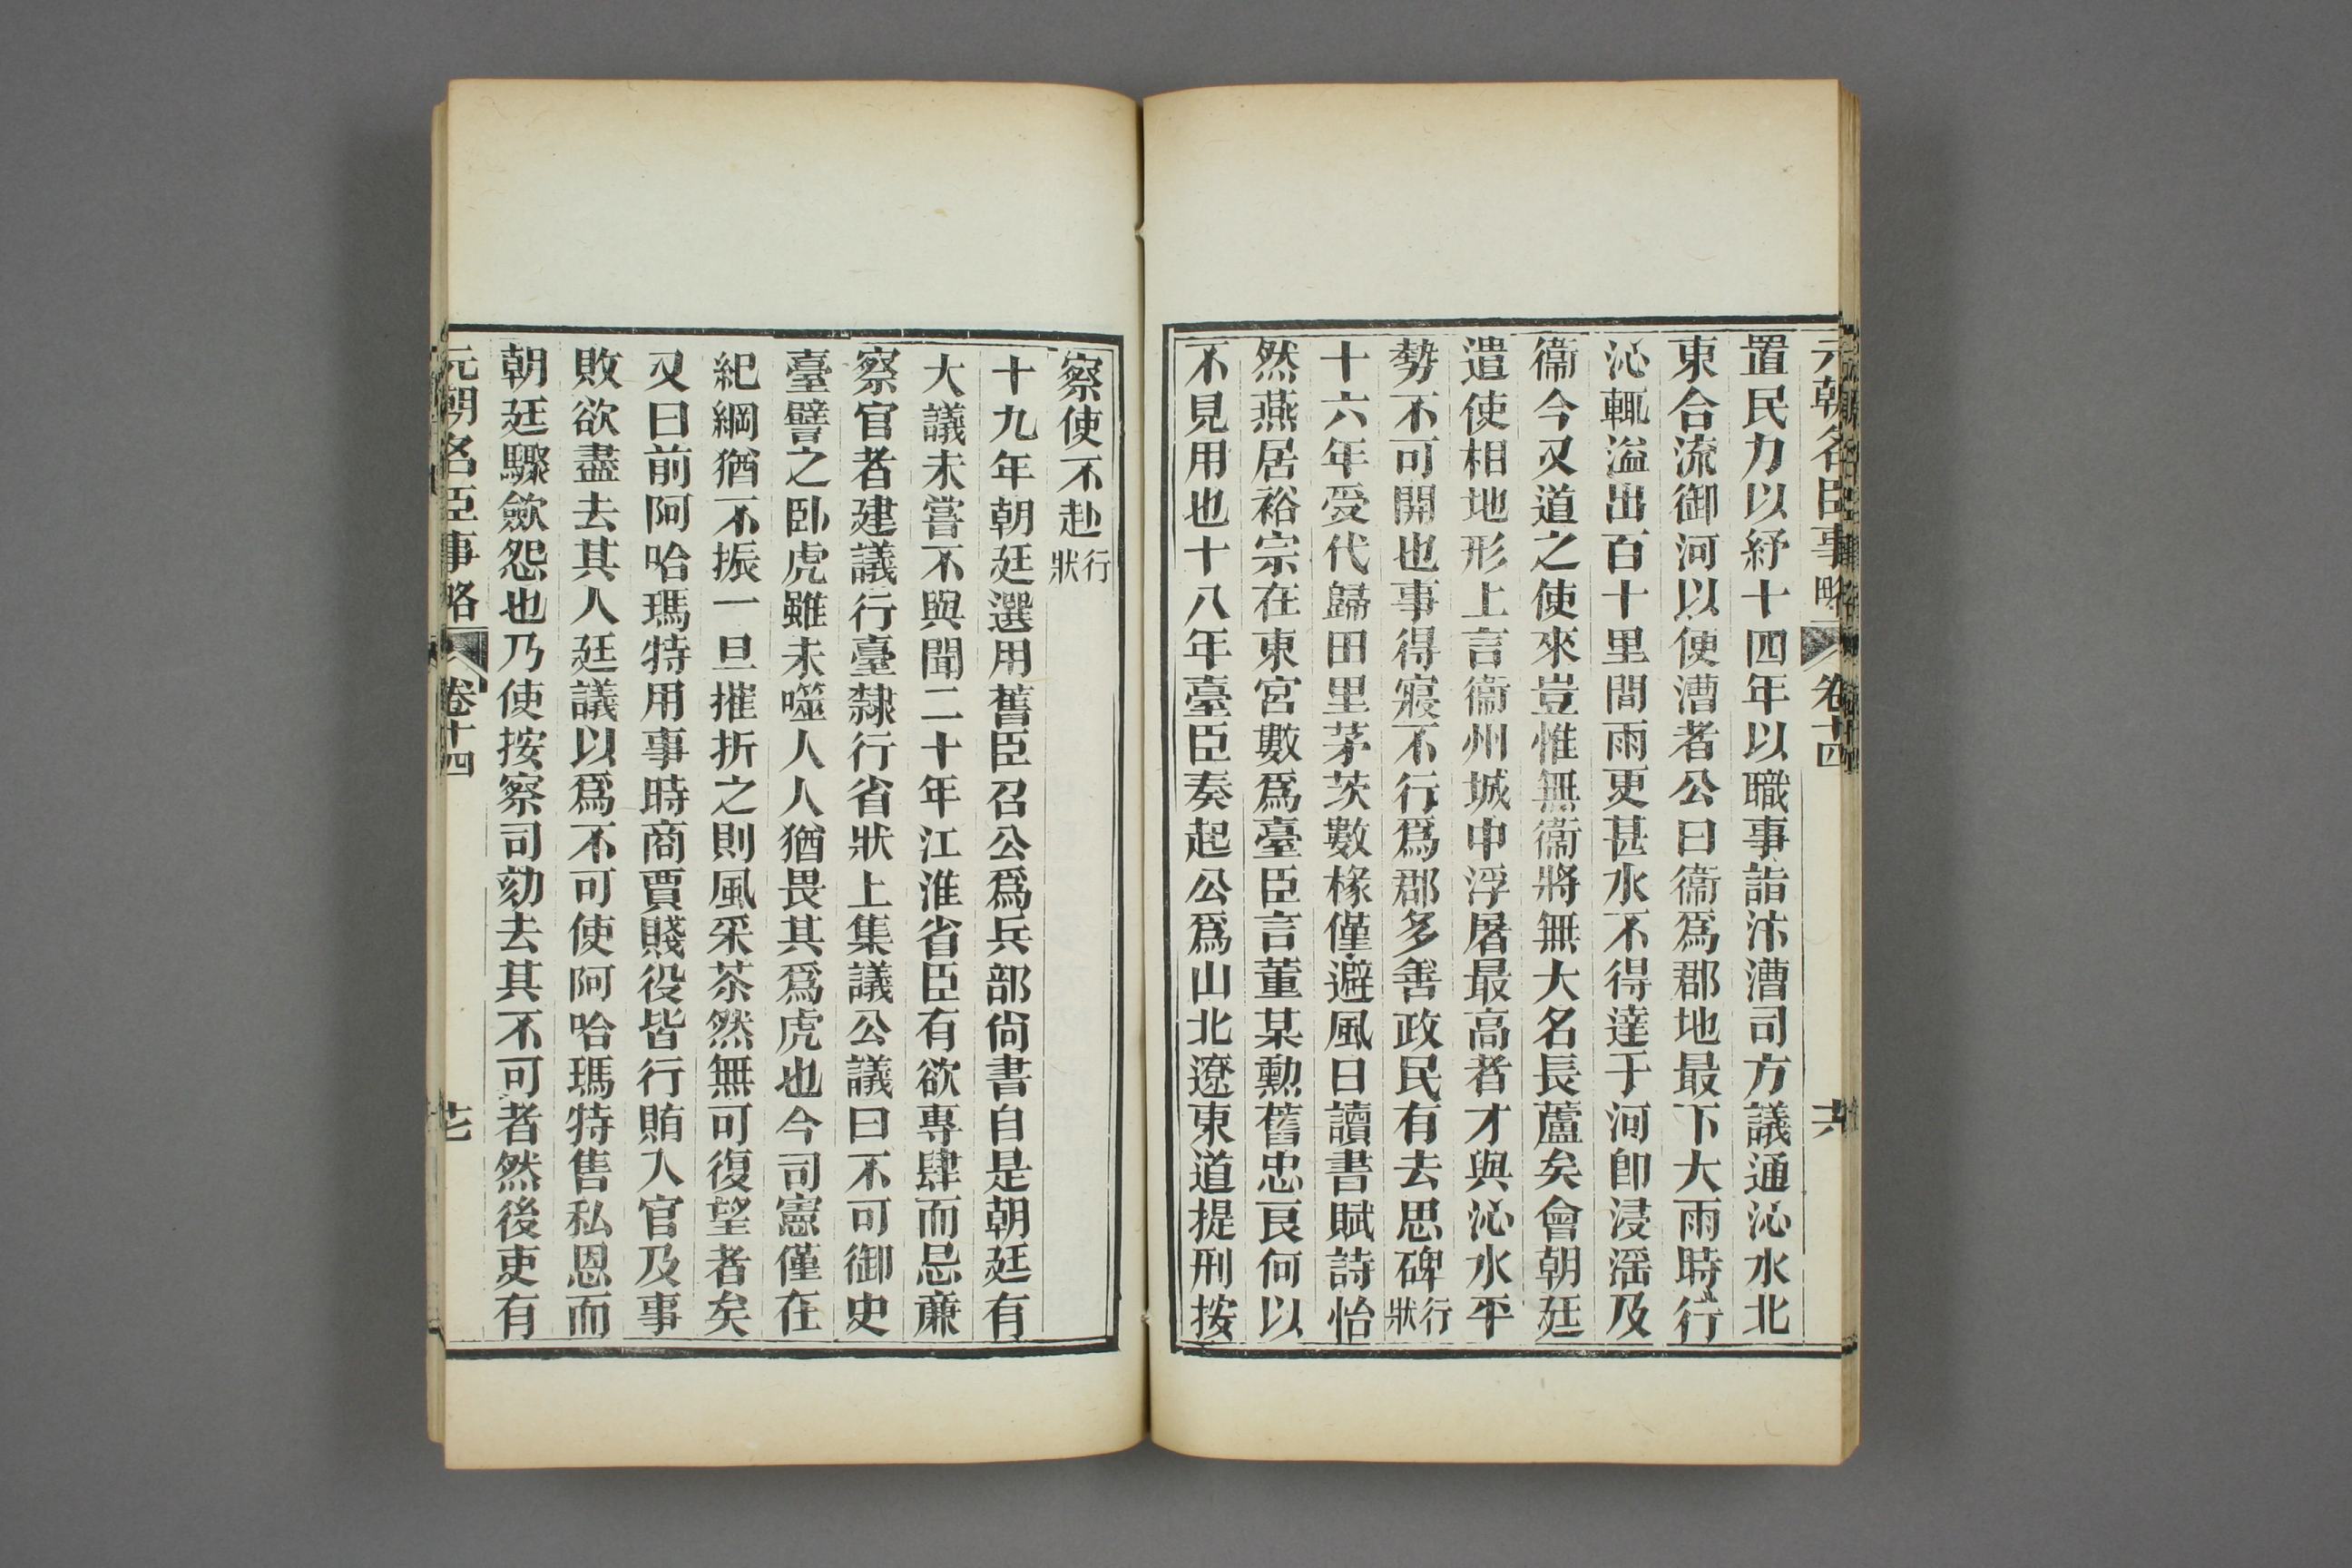 元朝名臣事略 卷十四 六
置民力以紓十四年以職事詣汴漕司方議通沁水北
東合流御河以便漕者公曰衞爲郡地最下大雨時行
沁輒溢出百十里間雨更甚水不得達于河卽浸淫及
衞今又道之使來豈惟無衞將無大名長蘆矣會朝廷
遣使相地形上言衞州城中浮屠最高者才與沁水平
勢不可開也事得寢不行爲郡多善政民有去思碑行狀
十六年受代歸田里茅茨數椽僅避風日讀書賦詩怡
然燕居裕宗在東宮數爲臺臣言董某勳舊忠良何以
不見用也十八年臺臣奏起公爲山北遼東道提刑按
察使不赴行狀
十九年朝廷選用舊臣召公爲兵部尙書自是朝廷有
大議未嘗不與聞二十年江淮省臣有欲專肆而忌亷
察官者建議行臺隸行省狀上集議公議曰不可御史
臺譬之卧虎雖未噬人人猶畏其爲虎也今司憲僅在
紀綱猶不振一旦摧折之則風采茶然無可復望者矣
又曰前阿哈瑪特用事時商賈賤役皆行賄入官及事
敗欲盡去其人廷議以爲不可使阿哈瑪特售私恩而
朝廷驟斂怨也乃使按察司劾去其不可者然後吏有
元朝名臣事略 卷十四